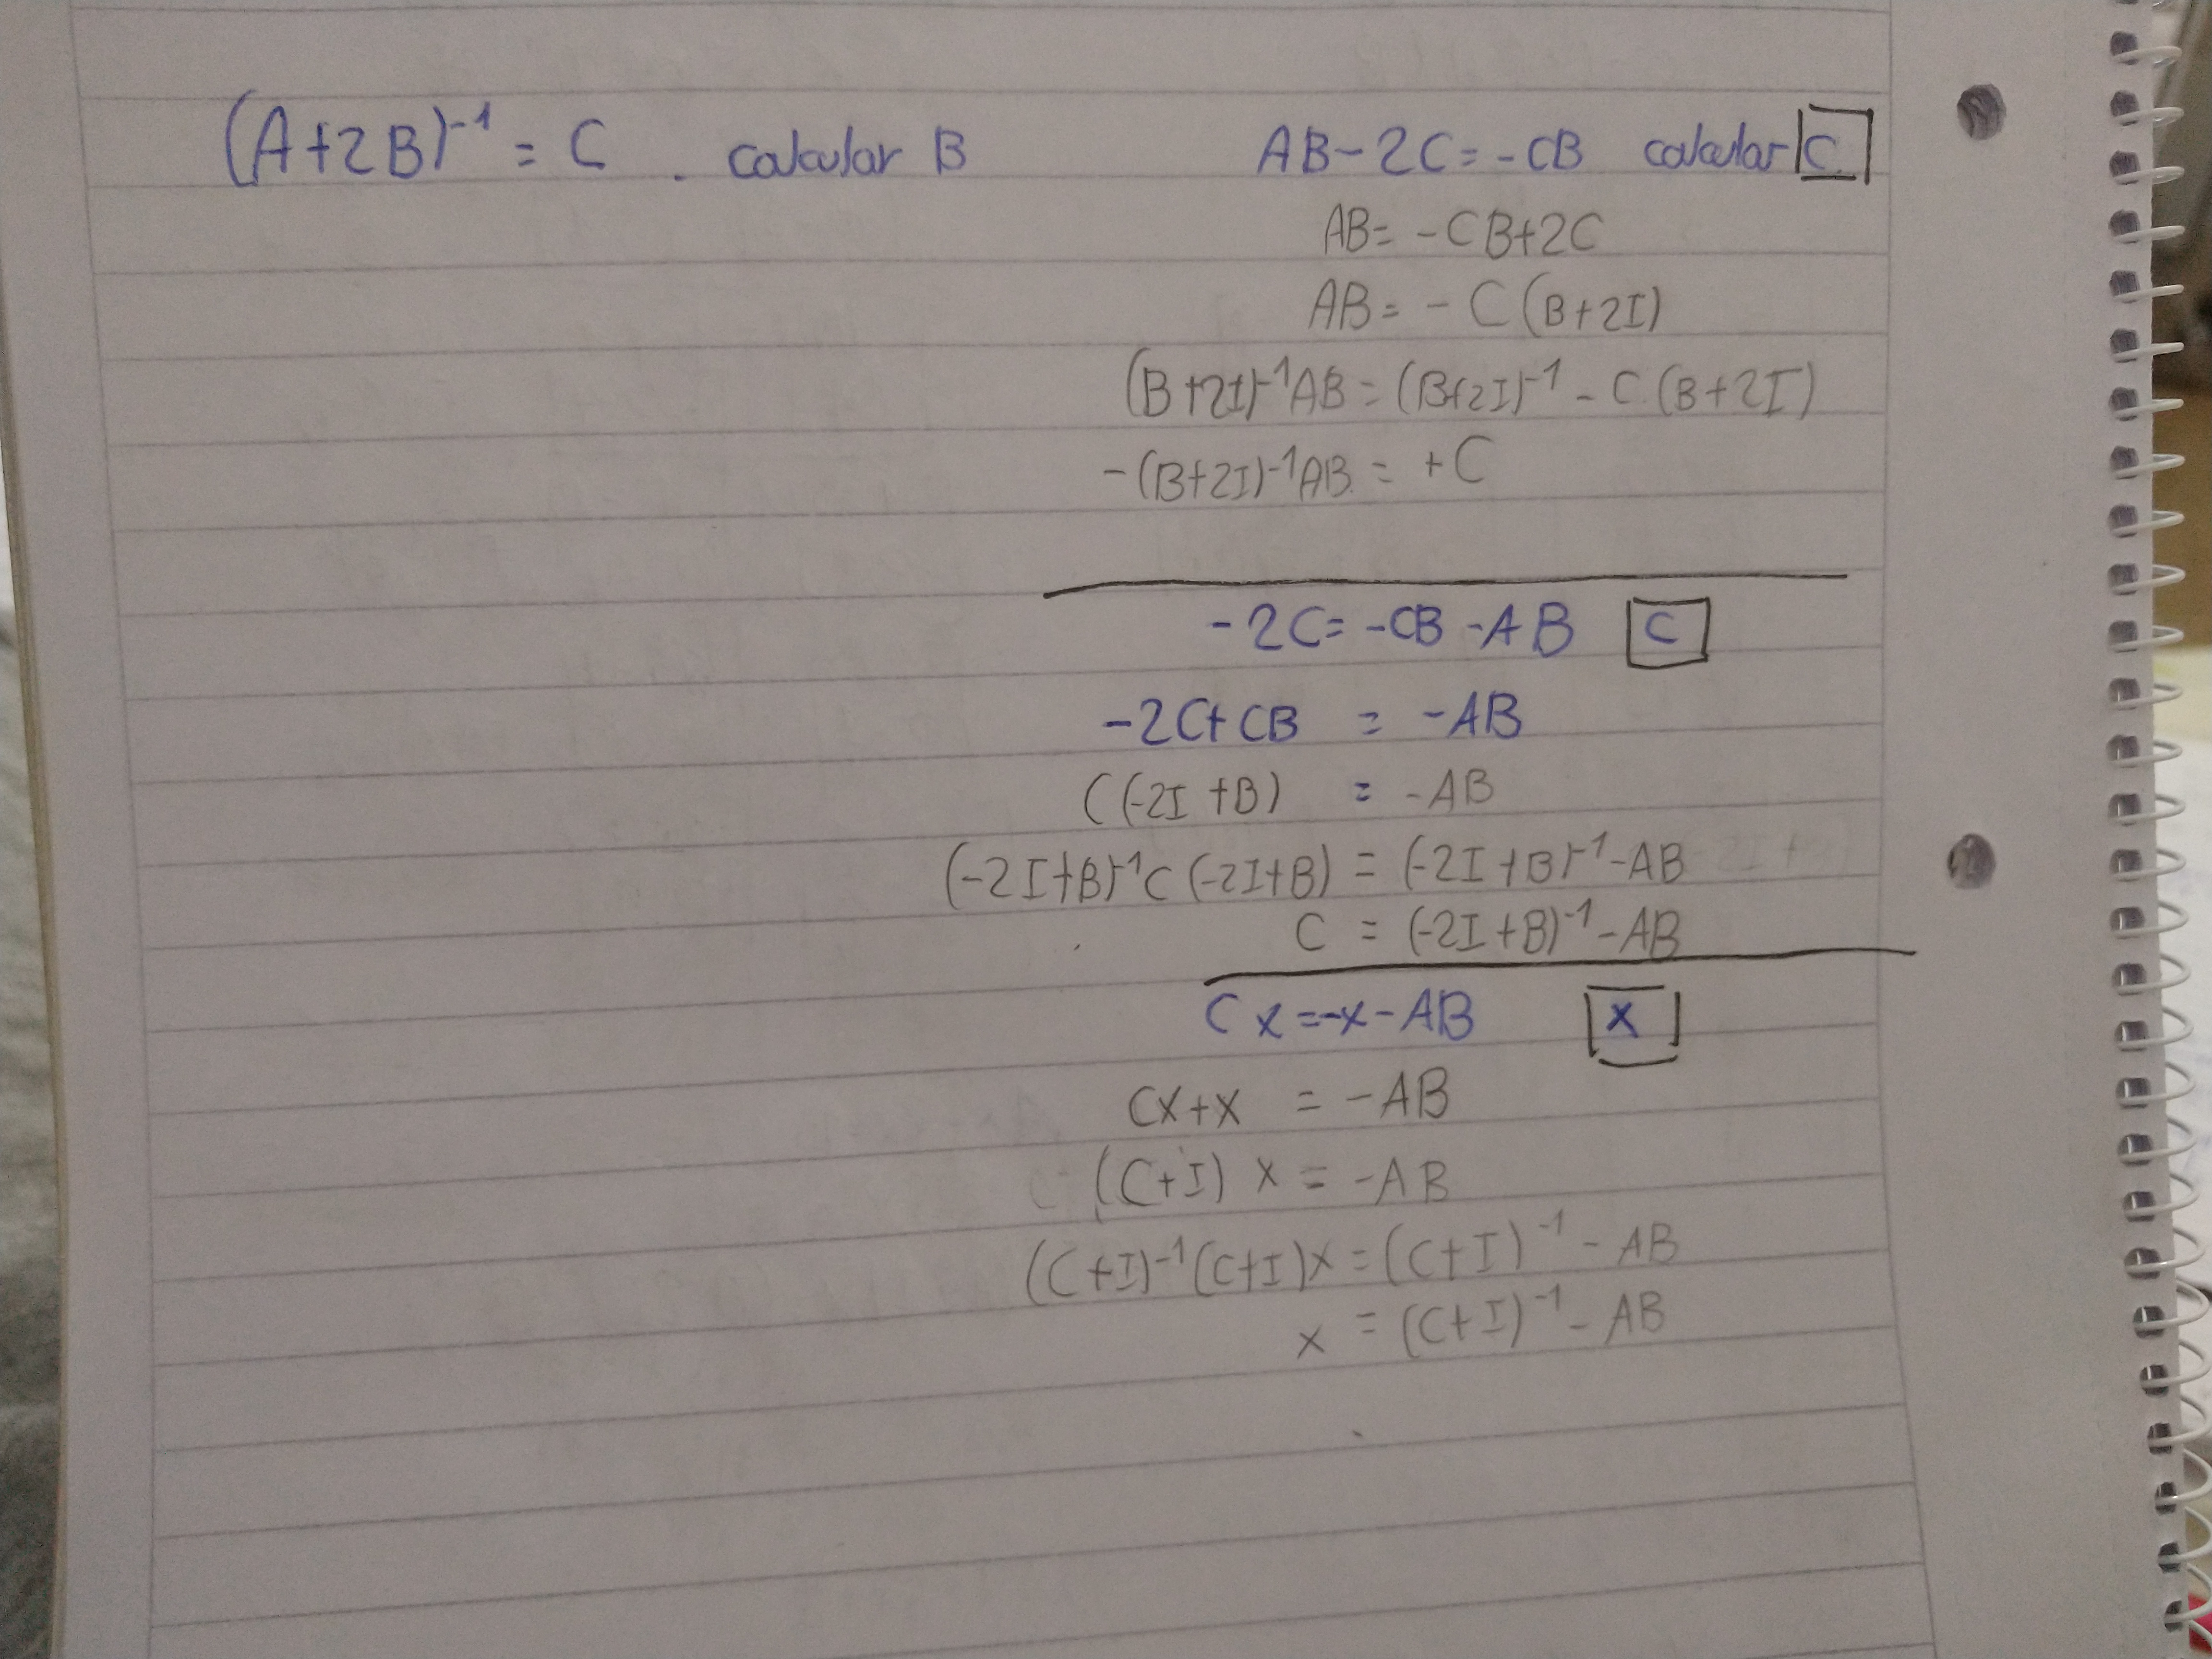 (A+2B)⁻¹ = C . calcular B
AB-2C=-CB calcular C
AB= -CB+2C
AB= -C(B+2I)
(B+2I)⁻¹AB=(B+2I)⁻¹-C.(B+2I)
-(B+2I)⁻¹AB = +C
-2C=-CB-AB C
-2C+CB = -AB
C(-2I+B) = -AB
(-2I+B)⁻¹C(-2I+B) = (-2I+B)⁻¹-AB
C = (-2I+B)⁻¹-AB
Cx=-x-AB x
Cx+x = -AB
(C+I) x = -AB
(C+I)⁻¹(C+I)x=(C+I)⁻¹-AB
x = (C+I)⁻¹-AB